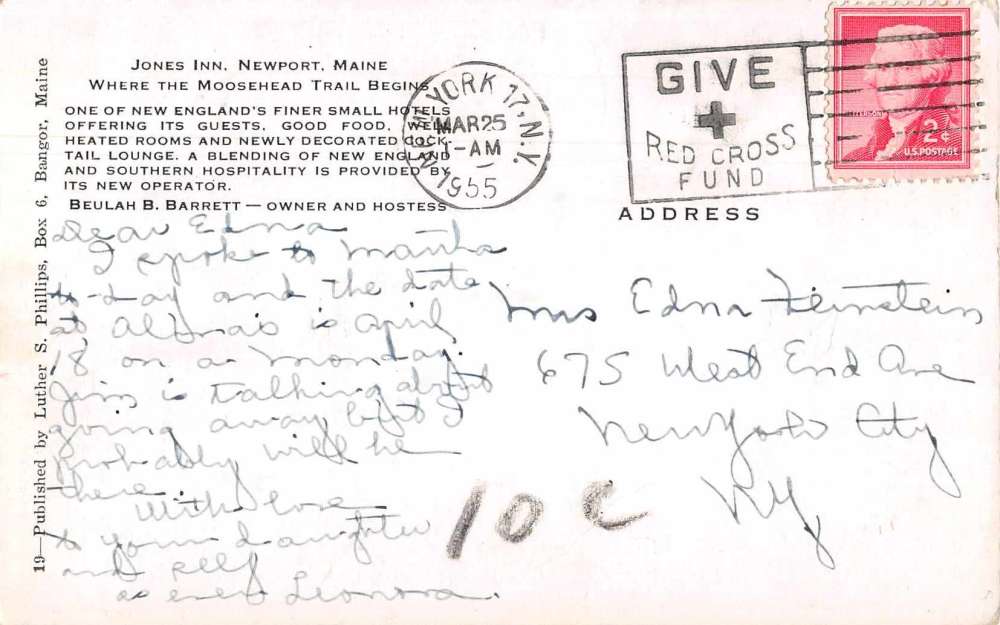 JONES INN, NEWPORT, MAINE
WHERE THE MOOSEHEAD TRAIL BEGINS
ONE OF NEW ENGLAND'S FINER SMALL HOTELS
OFFERING ITS GUESTS, GOOD FOOD, WELL
HEATED ROOMS AND NEWLY DECORATED COCK-
TAIL LOUNGE. A BLENDING OF NEW ENGLAND
AND SOUTHERN HOSPITALITY IS PROVIDED BY
ITS NEW OPERATOR.
BEULAH B. BARRETT — OWNER AND HOSTESS
19—Published by Luther S. Phillips, Box 6, Bangor, Maine
NEW YORK 17, N.Y.
MAR 25
-AM
1955
GIVE
RED CROSS
FUND
JEFFERSON
2¢
U.S. POSTAGE
ADDRESS
Dear Edna
I spoke to Martha
to-day and the date
at is April
18 on a Monday.
Jim is talking about
going away but I
probably will be
there.
With love
to your daughter
and self
as ever Leonora.
Mrs Edna Feinstein
675 West End Ave
New York City
NY
10 c